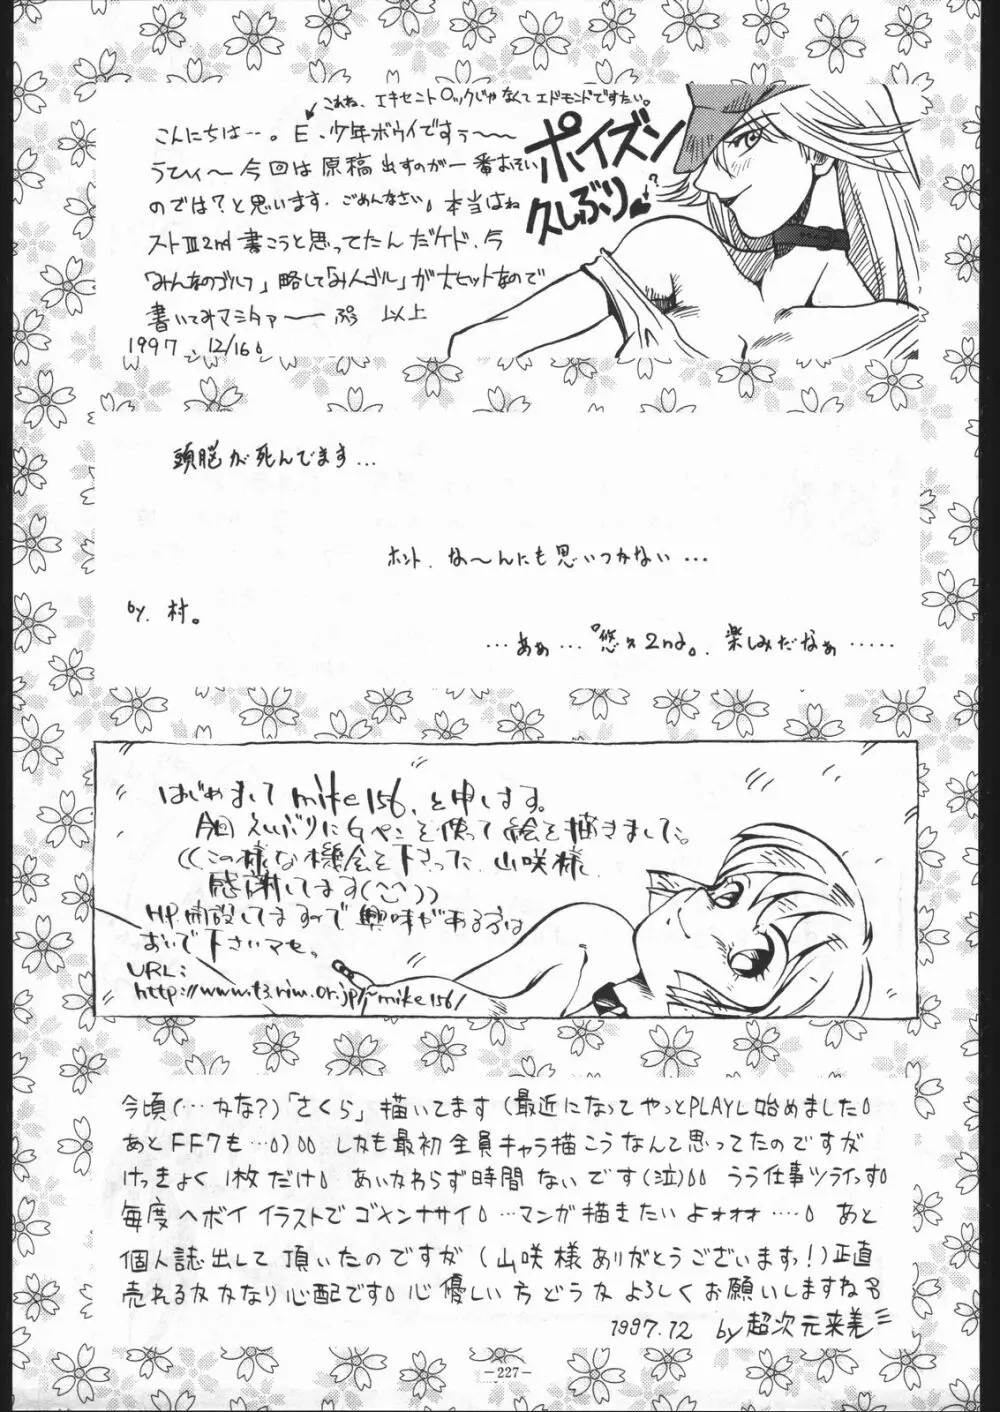 これね、エキセントロックじゃなくてエドモンドですたい。
こんにちは…。E.少年ボウイですぅ〜〜
うひぃ〜今回は原稿出すのが一番おそい
のでは?と思います.ごめんなさい。本当はね
ストⅢ2nd書こうと思ってたんだケド、今
「みんなのゴルフ」略して「みんゴル」が大ヒットなので
書いてみマシタァ〜〜 ぷぅ 以上
1997 12/16。
ポイズン
久しぶり
頭脳が死んでます…
ホント、な〜んにも思いつかない…
by.村。
…あぁ…『悠久2nd』。楽しみだなぁ……
はじめまして mike156、と申します。
今回えらいぶりにGペンを使って絵を描きました。
((この様な機会を下さった、山咲様、
感謝してます(^^))
HP開設してますので興味がある方は
おいで下さいマセ。
URL:
http://www.t3.rim.or.jp/~mike156/
今頃(…カな?)「さくら」描いてます(最近になってやっとPLAYし始めました。
あとFF7も…。)。。しカも最初全員キャラ描こうなんて思ってたのですが
けっきょく1枚だけ。あいカわらず時間ないです(泣)。。うう仕事ツライっす。
毎度ヘボイイラストでゴメンナサイ。…マンガ描きたいよォォォ……。あと
個人誌出して頂いたのですが(山咲様ありがとうございますっ!)正直
売れるカカなり心配です。心優しい方どうカよろしくお願いしますね
1997.12 by 超次元来美
-227-